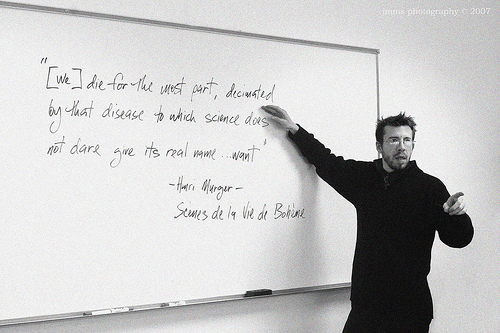 mms photography © 2007
"[we] die for the most part, decimated
by that disease to which science does
not dare give its real name...want"
-Henri Murger-
Scenes de la Vie de Bohème